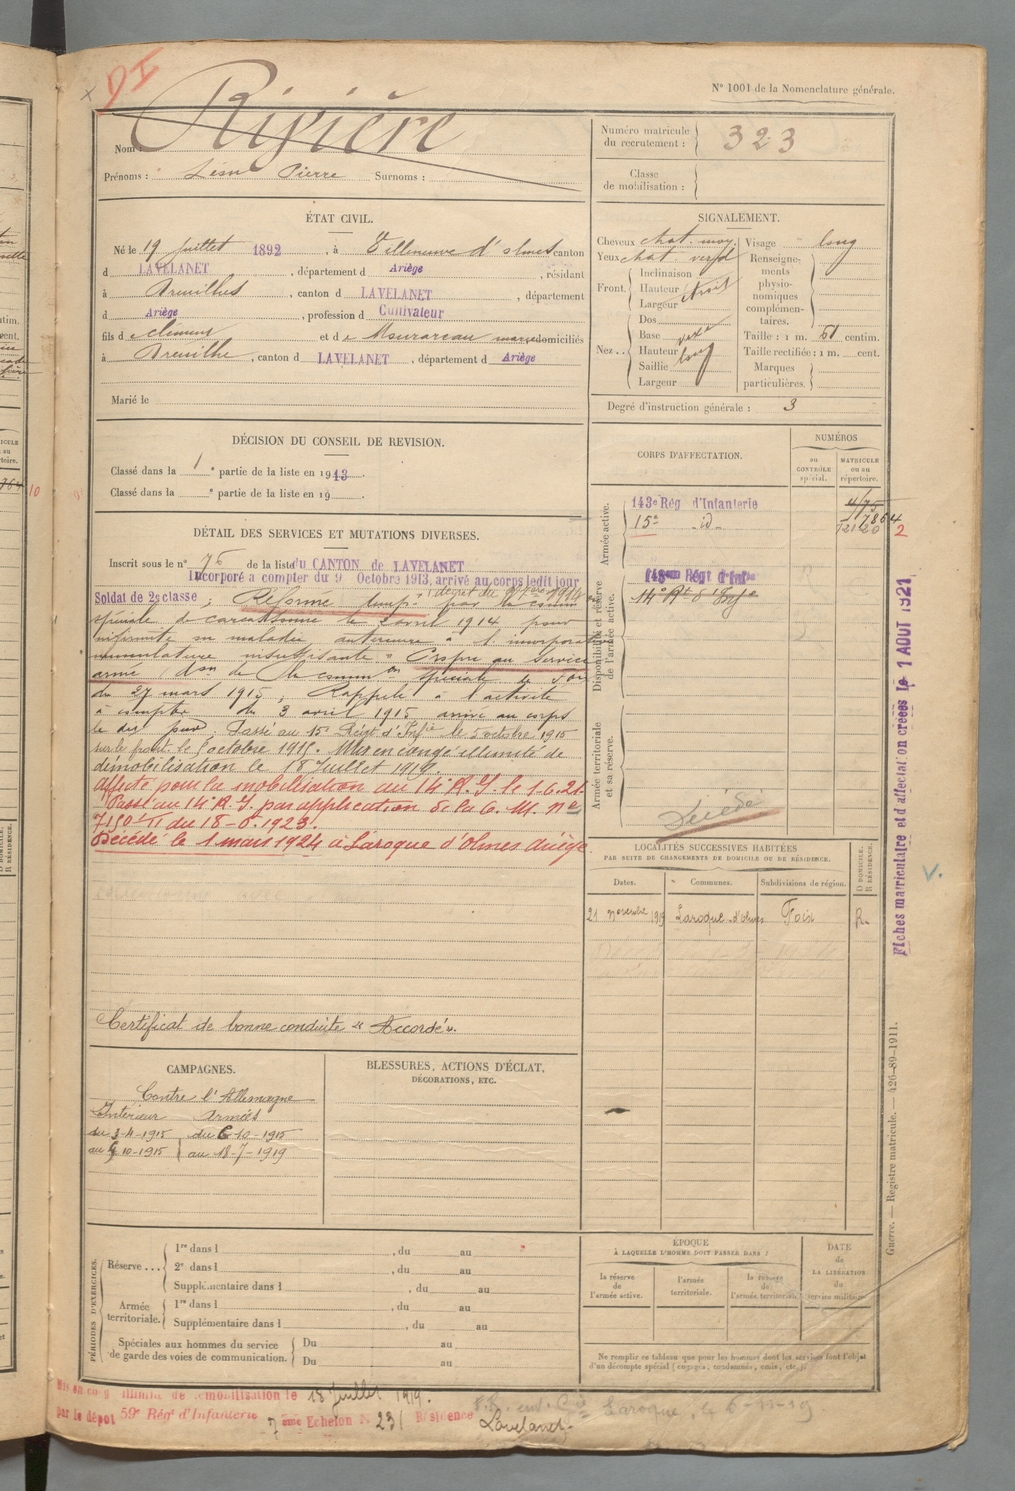 DI
N° 1001 de la Nomenclature générale.
Nom : Rivière
Prénoms : Léon Pierre Surnoms :
Numéro matricule du recrutement : 323
Classe de mobilisation :
ÉTAT CIVIL.
Né le 19 juillet 1892, à Villeneuve d'olmes canton
d LAVELANET, département d Ariège, résidant
à Dreuilhe, canton d LAVELANET, département
d Ariège, profession de Cultivateur
fils de Clément et de domiciliés
à Dreuilhe, canton d LAVELANET, département d Ariège
Marié le
SIGNALEMENT.
Cheveux chat. moy. Visage long
Yeux chat. verd
Renseignements physionomiques complémentaires.
Front. Inclinaison
Hauteur
Largeur étroit
Nez. Dos
Base vexe
Hauteur long
Saillie
Largeur
Taille : 1 m. 61 centim.
Taille rectifiée : 1 m. cent.
Marques particulières.
Degré d'instruction générale : 3
DÉCISION DU CONSEIL DE REVISION.
Classé dans la 1 e partie de la liste en 1913.
Classé dans la e partie de la liste en 19
CORPS D'AFFECTATION.
NUMÉROS
au CONTRÔLE spécial.
MATRICULE ou au répertoire.
Armée active.
143e Rég d'Infanterie
15e id
7854
12120
2
Disponibilité et réserve de l'armée active.
143em Régt d'Infie
14e Rt d'Infie
Armée territoriale et sa réserve.
Décédé
DÉTAIL DES SERVICES ET MUTATIONS DIVERSES.
Inscrit sous le n° 76 de la liste du CANTON de LAVELANET
Incorporé a compter du 9 Octobre 1913, arrivé au corps ledit jour
Soldat de 2e classe ; Réformé temp. par la comm
spéciale de Carcassonne le 2 avril 1914 pour
infirmité ou maladie antérieure à l'incorporation
insuffisante. Propre au service
armé don de la common spéciale de Foix
du 27 mars 1915, Rappelé à l'activité
à compter du 3 avril 1915 arrivé au corps
le dit jour. Passé au 15e Régt d'Infie le 5 octobre 1915
sur le front le 5 octobre 1915. Mis en congé illimité de
démobilisation le 18 Juillet 1919.
Affecté pour la mobilisation au 14e R. I. le 1.6.21
Passé au 14e R. I. par application de la C. M. no
7150 du 18-6.1923.
Décédé le 1 mars 1924 à Laroque d'Olmes Ariège
Certificat de bonne conduite « Accordé ».
LOCALITÉS SUCCESSIVES HABITÉES
PAR SUITE DE CHANGEMENTS DE DOMICILE OU DE RÉSIDENCE.
Dates. Communes. Subdivisions de région. D DOMICILE. R RÉSIDENCE.
21 novembre 1919 Laroque-d'Olmes Foix R
CAMPAGNES.
Contre l'Allemagne
Intérieur Armées
du 3-4-1915 du 6-10-1915
au 5-10-1915 au 18-7-1919
BLESSURES, ACTIONS D'ÉCLAT,
DÉCORATIONS, ETC.
PÉRIODES D'EXERCICES.
Réserve ... 1re dans l , du au
2e dans l , du au
Supplémentaire dans l , du au
Armée territoriale. 1re dans l , du au
Supplémentaire dans l , du au
Spéciales aux hommes du service de garde des voies de communication. Du au
Du au
ÉPOQUE
À LAQUELLE L'HOMME DOIT PASSER DANS :
la réserve de l'armée active.
l'armée territoriale.
la réserve de l'armée territoriale.
DATE de LA LIBÉRATION du service militaire.
Ne remplir ce tableau que pour les hommes dont les services font l'objet
d'un décompte spécial (engagés, condamnés, omis, etc.).
Mis en congé illimité de démobilisation le 18 Juillet 1919.
par le dépôt 59e Régt d'Infanterie 7ème Echelon N 231 Résidence Lavelanet
Laroque, le 6-11-19
Fiches matriculaire et d'affectation créées le 1 AOUT 1921
Guerre. — Registre matricule. — 426-89-1911.